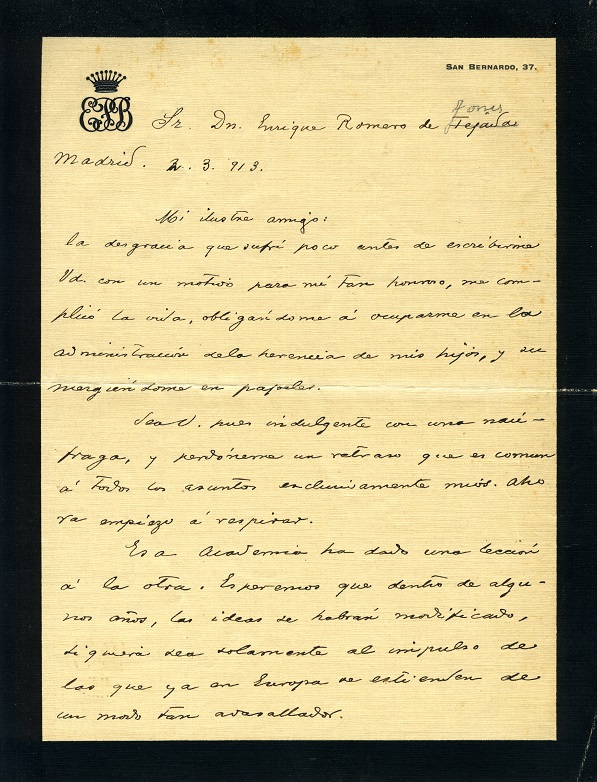 SAN BERNARDO, 37.
EPB
Sr. Dn. Enrique Romero de Tejada
Torres
Madrid. 2. 3. 913.
Mi ilustre amigo:
la desgracia que sufrí poco antes de escribirme
Vd. con un motivo para mí tan honroso, me com-
plicó la vida, obligandome á ocuparme en la
administración de la herencia de mis hijos, y su
mergiéndome en papeles.
Sea V. pues indulgente con una náu-
fraga, y perdóneme un retraso que es comun
á todos los asuntos exclusivamente mios. Aho
ra empiezo á respirar.
Esa Academia ha dado una lección
á la otra. Esperemos que dentro de algu-
nos años, las ideas se habrán modificado,
siquiera sea solamente al impulso de
las que ya en Europa se estienden de
un modo tan avasallador.